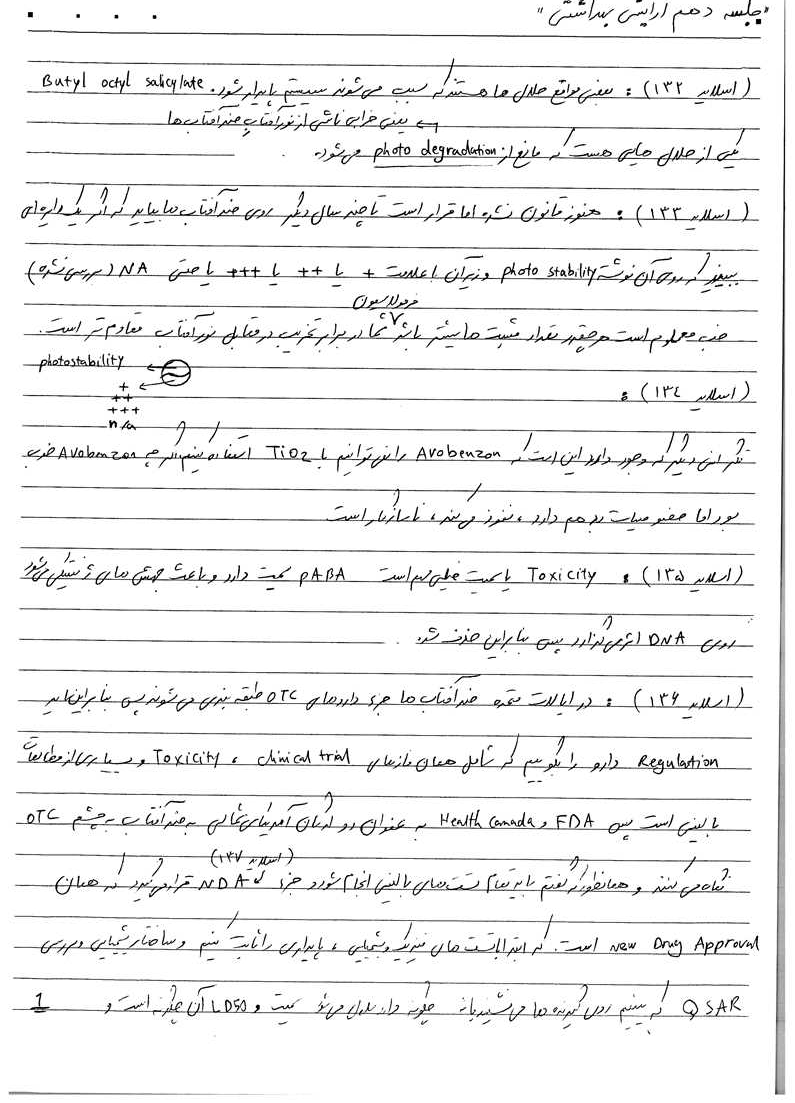 "جلسه دهم آرایشی بهداشتی"
(اسلاید ۱۳۲) : بعضی مواقع حلال ها هستند که سبب می شوند سیستم پایدار شود. Butyl octyl salicylate
یعنی خرابی ناشی از نور آفتاب ضدآفتاب ها
یکی از حلال هایی هست که مانع از photo degradation می شود.
(اسلاید ۱۳۳) : هنوز قانون نشده اما قرار است تا چند سال دیگر روی ضدآفتاب ها بیاید که اگر یک دایره ای
ببینیم که روی آن نوشته photo stability و زیر آن علامت + یا ++ یا +++ یا حتی NA (بررسی نشده)
فرمولاسیون
خب معلوم است هرچقدر تعداد مثبت ها بیشتر باشد شما در برابر تخریب در مقابل نور آفتاب مقاوم تر است.
photostability
+
++
+++
n/a
(اسلاید ۱۳۴) :
نگرانی دیگر که وجود دارد این است که Avobenzon را نمی توانیم با TiO2 استفاده کنیم اگرچه Avobenzon خوب
بود اما خصوصیات بد هم دارد، نفوذ می کند، ناسازگار است
(اسلاید ۱۳۵) : Toxicity یا سمیت خیلی مهم است PABA سمیت دارد و باعث جهش های ژنتیکی می شود
روی DNA اثر می گذارد پس بنابراین حذف شد.
(اسلاید ۱۳۶) : در ایالات متحده ضدآفتاب ها جزء داروهای OTC طبقه بندی می شوند پس بنابراین باید
Regulation دارو را بگوییم که شامل همان فازهای clinical trial ، Toxicity و بسیاری از مطالعات
بالینی است پس FDA و Health Canada به عنوان دو ارگان آمریکای شمالی به ضدآفتاب به چشم OTC
(اسلاید ۱۳۷)
نگاه می کنند و همانطور که گفتم باید تمام تست های بالینی انجام شود و جزء NDA قرار می گیرد که همان
New Drug Approval است. که ابتدا تست های فیزیک و شیمیایی ، پایداری را ثابت کنیم و ساختار شیمیایی و بررسی
QSAR که ببینیم روی گیرنده ها می نشیند یا نه چگونه دارو می شود سمیت و LD50 آن چگونه است و
1